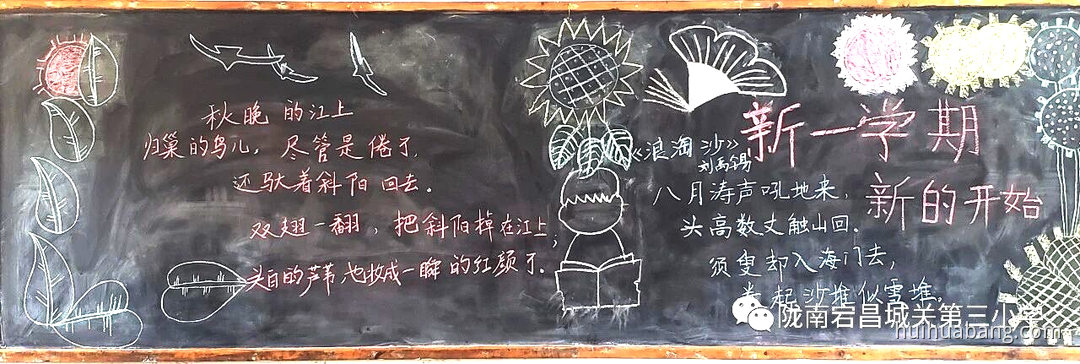 秋晚的江上
归巢的鸟儿，尽管是倦了，
还驮着斜阳回去。
双翅一翻，把斜阳掉在江上；
头白的芦苇也妆成一瞬的红颜了。
《浪淘沙》
刘禹锡
八月涛声吼地来，
头高数丈触山回。
须臾却入海门去，
卷起沙堆似雪堆。
新一学期
新的开始
陇南宕昌城关第三小学
huihuabang.com